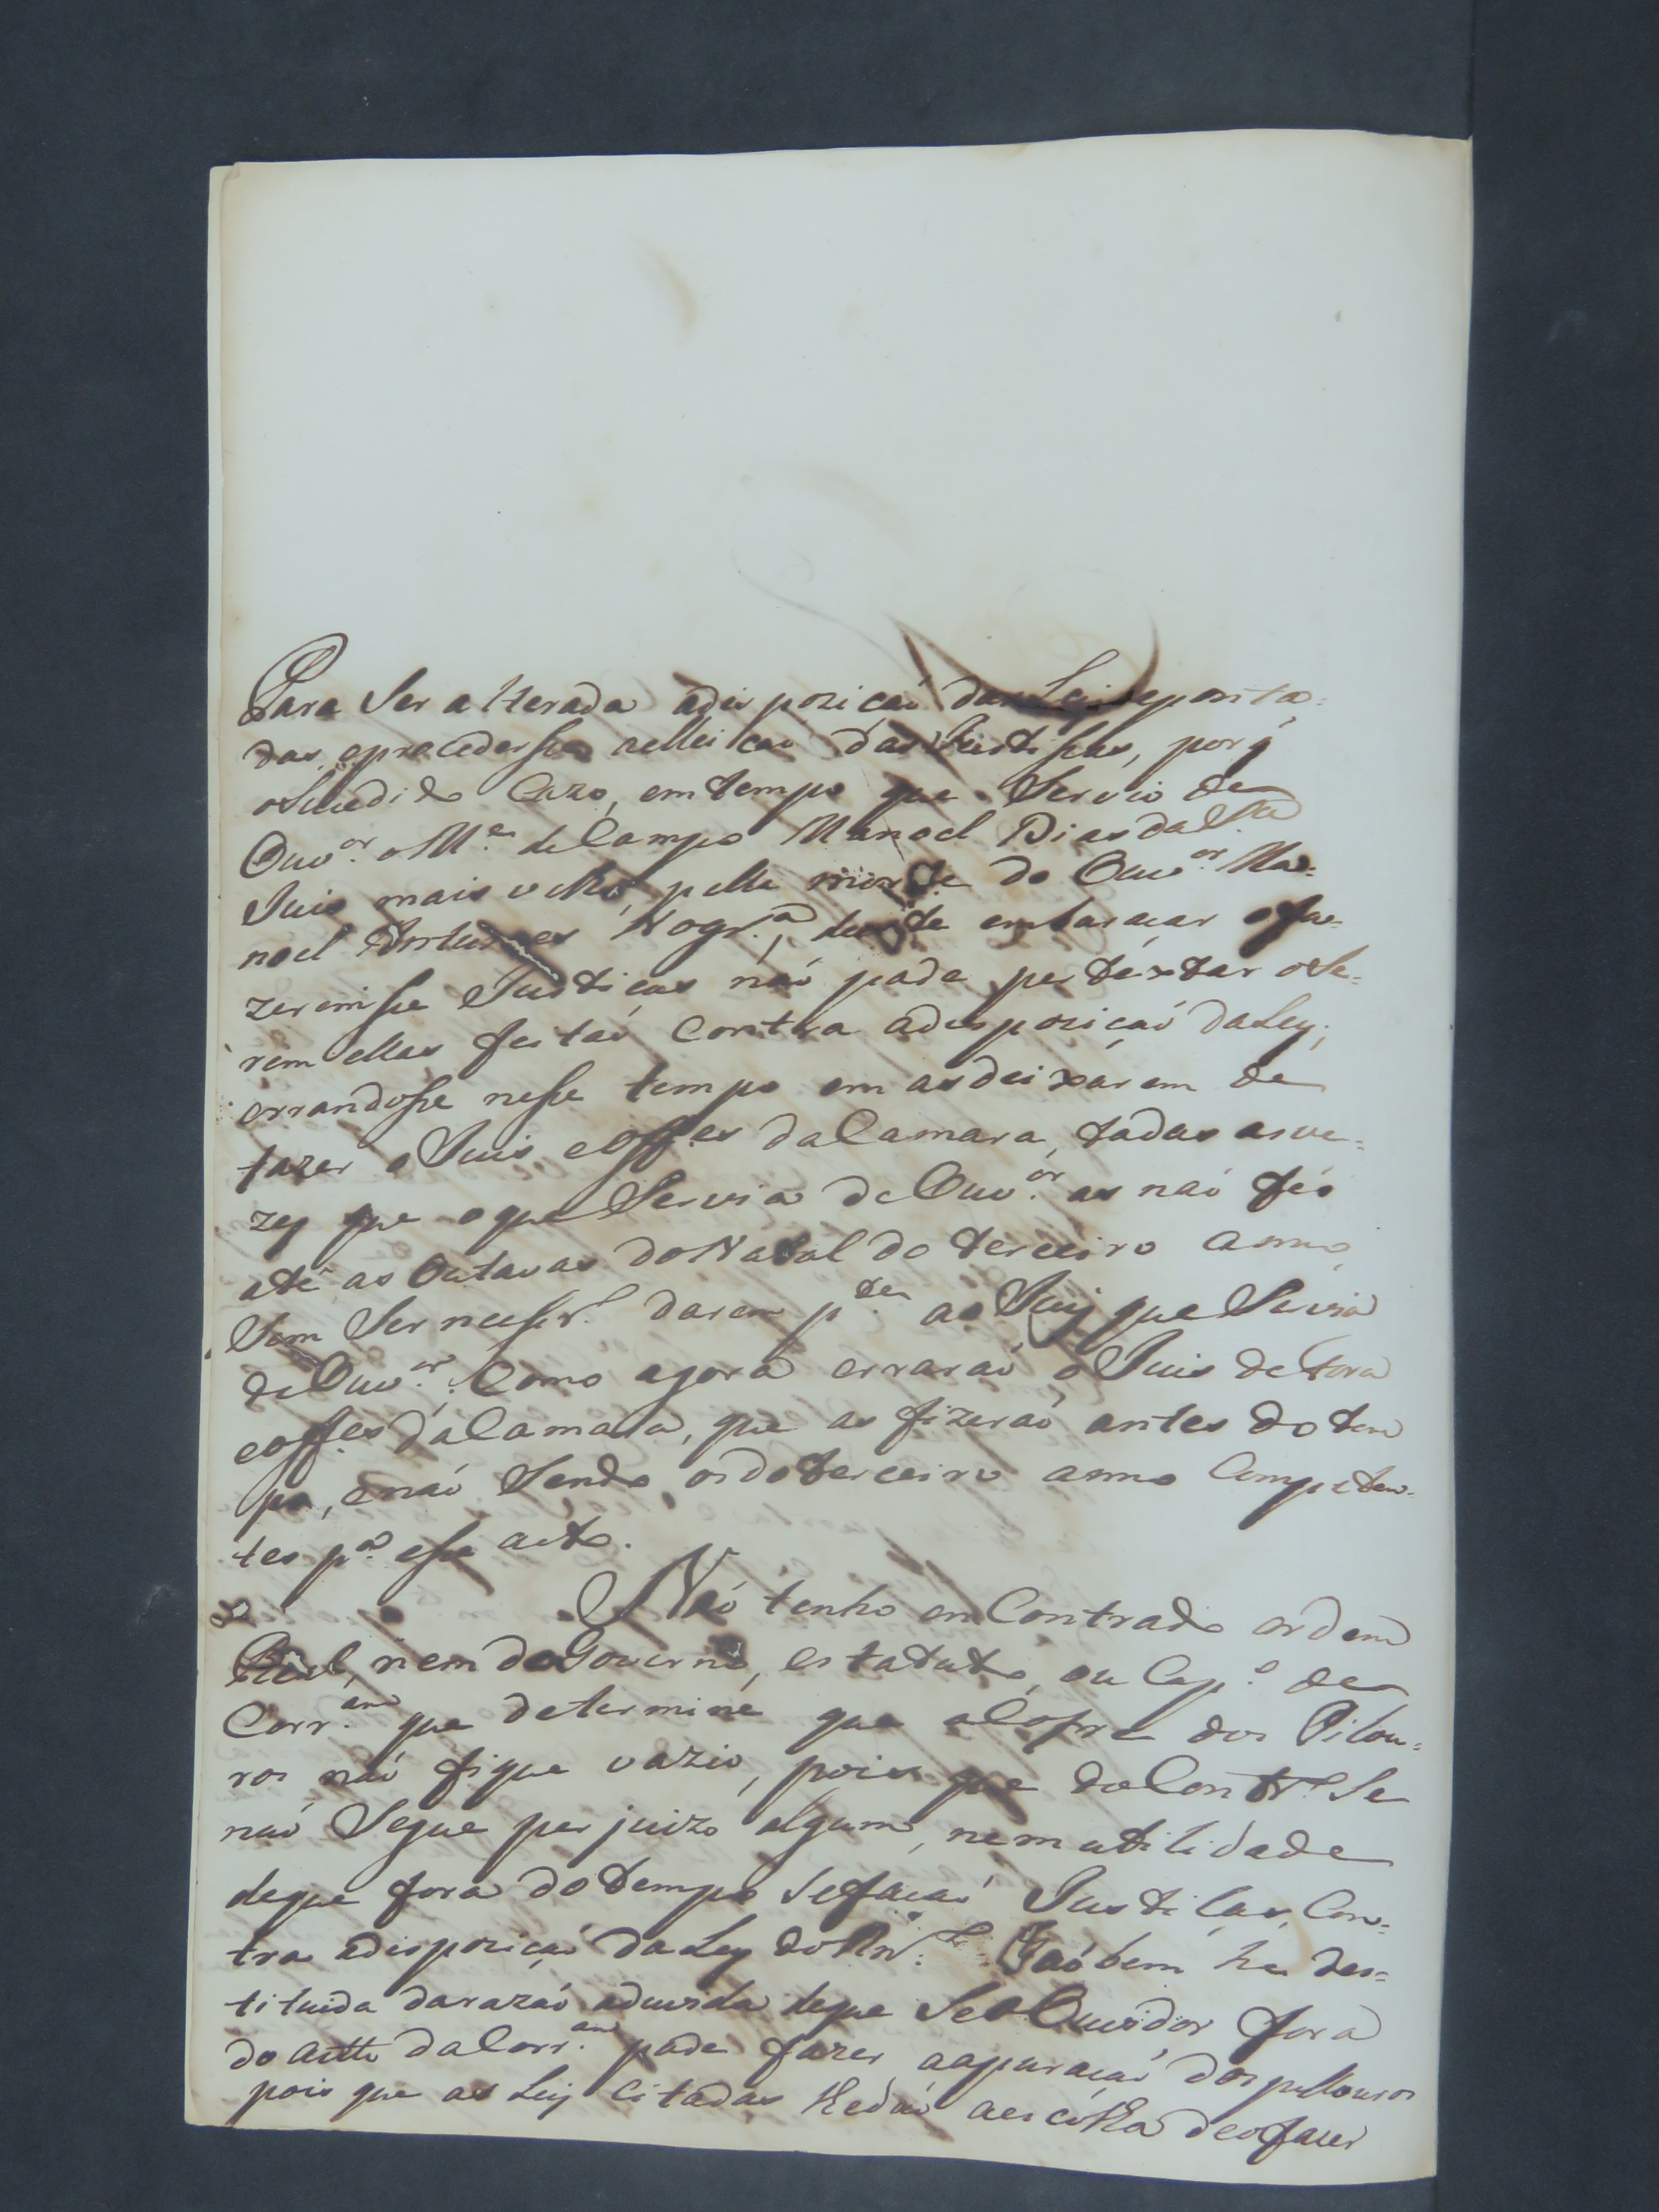 Para Ser alterada adispozicaó das Leis aponta-
das, eprocedersse aelleicaó das Justissas, porq̃
oSucedido Cazo, emtempo que Servio de
Ouv.or o M.e de Campo Manoel Dias da S.a
Juis mais velho, pella morte do Ouv.or Ma-
noel Antunes Nogr.a, de embaraçar ofa-
zeremsse Justiças, naó pode pertextar oSe-
rem ellas feitaś Contra adispoziçaó daLey,
errandosse nesse tempo em as deixárem de
fazer o Juis, eOff.es daCamara, todas asve-
zes que oque Servia de Ouv.or as naó fés
até as Outavas doNatal do terceiro anno
Sem Ser necessr.o darem p.te ao Juis que Servia
de Ouv.or, Como agora erraraó o Juis de Fora
eoff.es daCamara, que as fizeraó antes do tem
po, enaó Sendo, os do terceiro anno Competen-
tes p.a esse acto.
Naó tenho em Contrado ordem
Real, nem do Governo, estatuto, ou Cap.o de
Corr.am que determine que oCofre dos Pilou-
ros naó fique vazio, pois que do Contr.o Se
naó Segue perjuizo algum, nem utilidade
deque fora do tempo Sefaçaó Justiças, Con-
tra adispoziçaó da Ley do Taóbem he des-
tituida darazaó aduvida deque Seo Ouvidor fora
do acto da Corr.am pode fazer aapuraçaó dos pellouros
pois que as Leis Citadas lhedaó aescolha deofazer